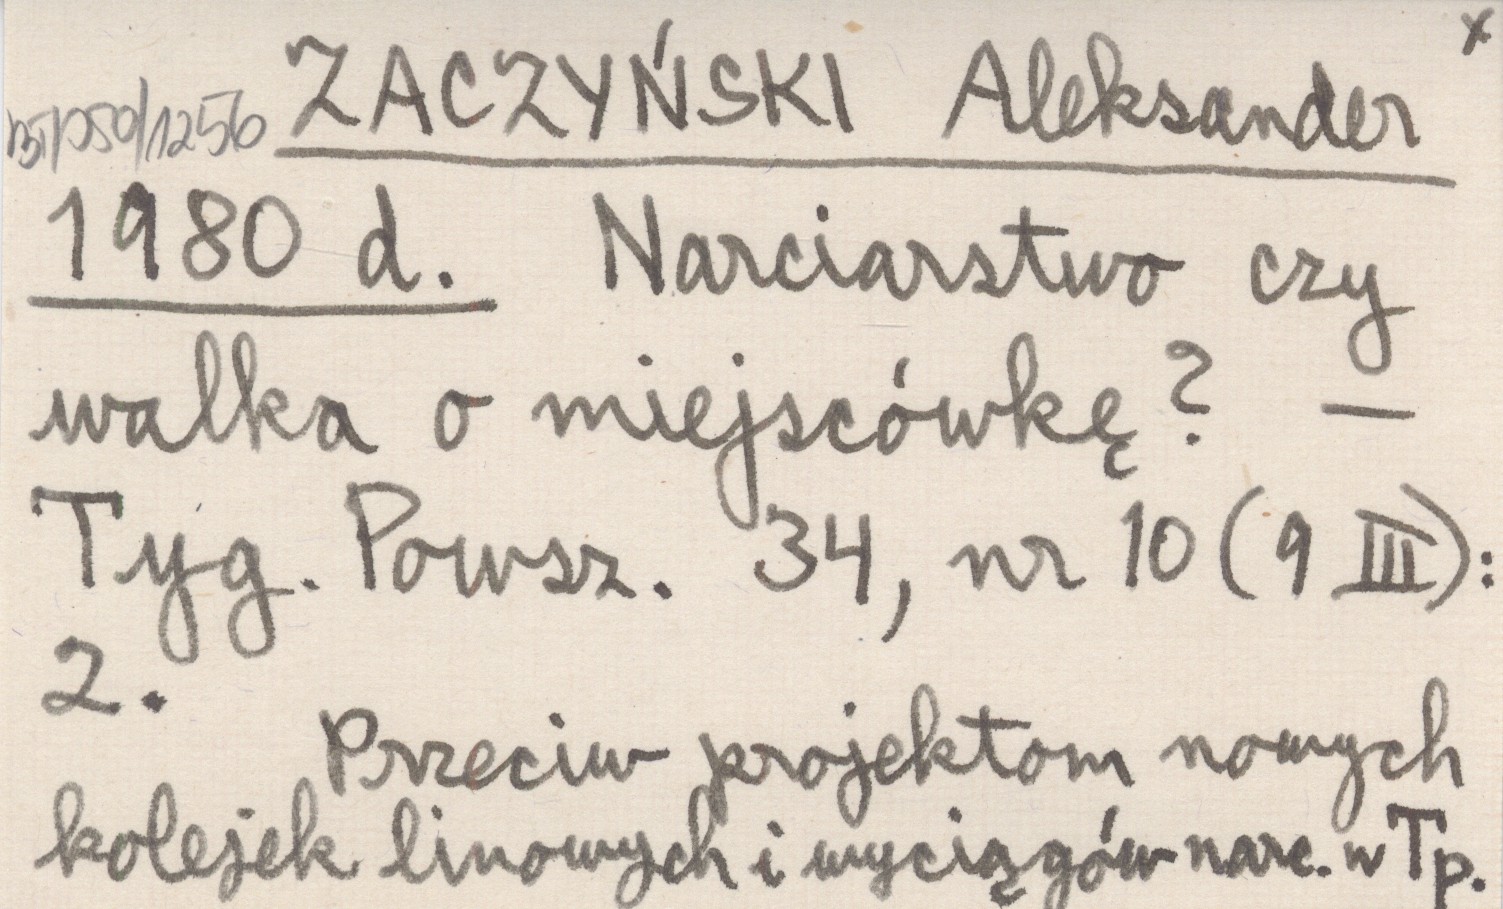 x
ZACZYŃSKI Aleksander
1980 d. Narciarstwo czy
walka o miejscówkę? —
Tyg. Powsz. 34, nr 10 (9 III):
2.
Przeciw projektom nowych
kolejek linowych i wyciągów narc. w Tp.